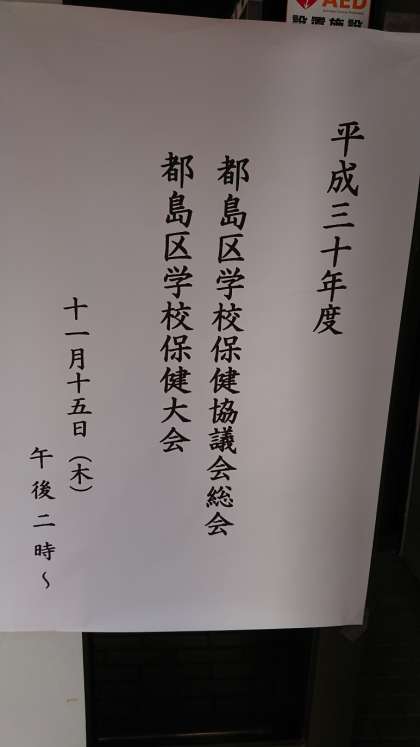 AED
設置施設
平成三十年度
都島区学校保健協議会総会
都島区学校保健大会
十一月十五日（木）
午後二時～